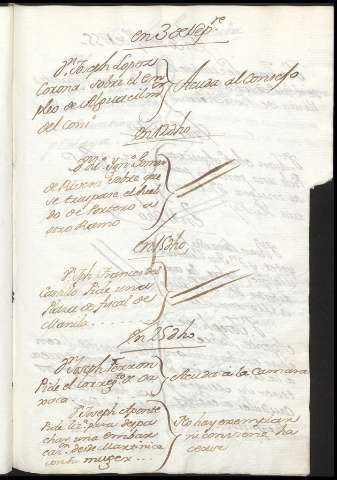 en 3 de Sep.re
D.n Joseph Lopez
Corona. sobre el em
pleo de Alguacil m.r
del con.o
Acuda al Consejo
en 12 dho
sobre que
se traspase el
do de Portero de
otro Ramo
en 15 dho
D.n Jph Frances del
Castillo Pide una
Plaza de fiscal de
Manila
en 25 dho
D.n Joseph Ferron
Pide el Correg.to de Oa
xaca
Acuda a la Camara
D.n Joseph Aponte
Pide liz.a para despa
char una embar
ca.on desde Martinica
con su muger
No hay exemplar
ni conviene ha
cerse